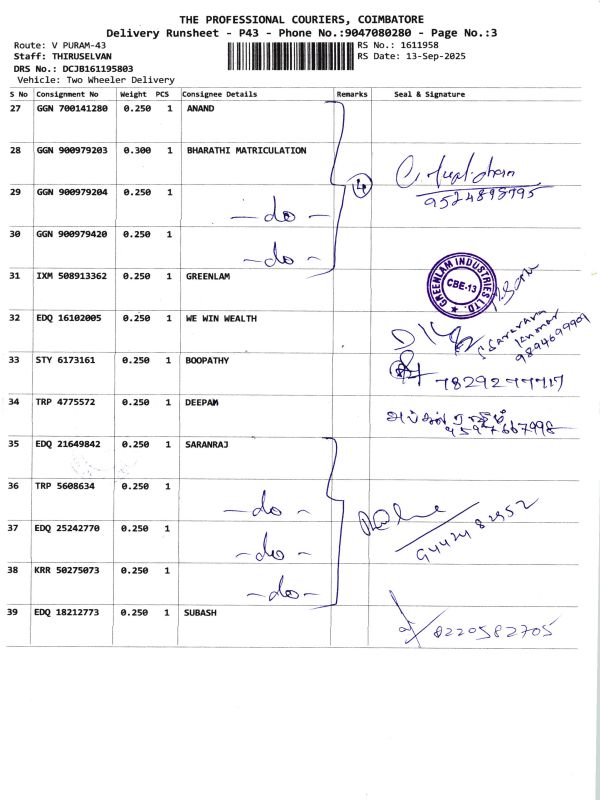 THE PROFESSIONAL COURIERS, COIMBATORE
Delivery Runsheet - P43 - Phone No.:9047080280 - Page No.:3
Route: V PURAM-43 RS No.: 1611958
Staff: THIRUSELVAN RS Date: 13-Sep-2025
DRS No.: DCJB161195803
Vehicle: Two Wheeler Delivery
S No Consignment No Weight PCS Consignee Details Remarks Seal & Signature
27 GGN 700141280 0.250 1 ANAND
28 GGN 900979203 0.300 1 BHARATHI MATRICULATION
4
9524898795
29 GGN 900979204 0.250 1 -do-
30 GGN 900979420 0.250 1 -do-
31 IXM 508913362 0.250 1 GREENLAM
GREENLAM INDUSTRIES LTD. CBE-13
32 EDQ 16102005 0.250 1 WE WIN WEALTH
Saravana
Kumar
9894699909
33 STY 6173161 0.250 1 BOOPATHY
34 TRP 4775572 0.250 1 DEEPAM
9597667998
35 EDQ 21649842 0.250 1 SARANRAJ
36 TRP 5608634 0.250 1 -do-
37 EDQ 25242770 0.250 1 -do-
9442482952
38 KRR 50275073 0.250 1 -do-
39 EDQ 18212773 0.250 1 SUBASH
8220582705